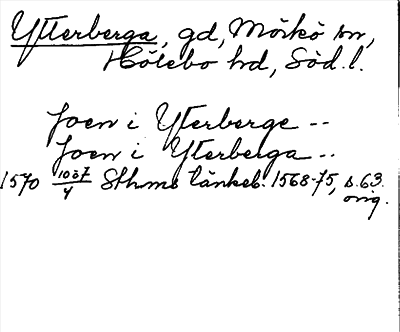 Ytterberga, gd, Mörkö sn,
Hölebo hd, Söd. l.
Joen i Ytterberge --
Joen i Ytterberga --
1570 10/7 Sthms tänkeb. 1568-75, s. 63.
4 orig.